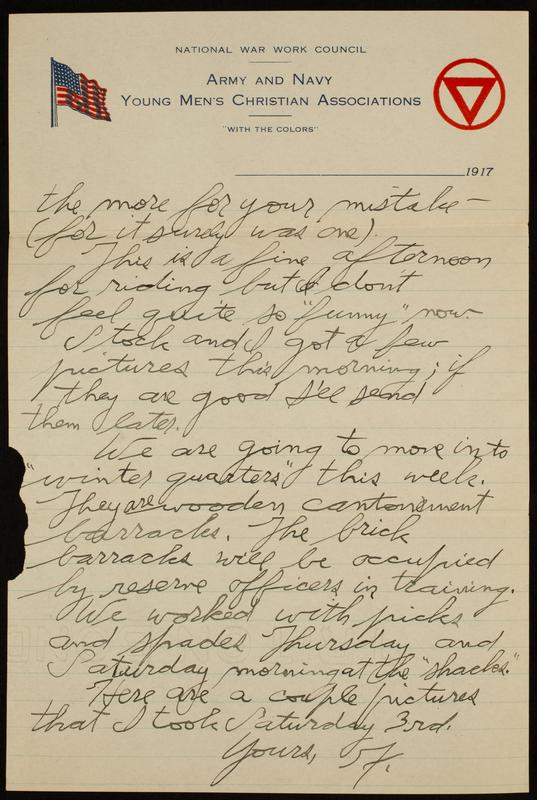 NATIONAL WAR WORK COUNCIL
ARMY AND NAVY
YOUNG MEN'S CHRISTIAN ASSOCIATIONS
"WITH THE COLORS"
1917
the more for your mistake —
(for it surely was one).
This is a fine afternoon
for riding but I don't
feel quite so "funny" now.
Stock and I got a few
pictures this morning; if
they are good I'll send
them later.
We are going to move into
"winter quarters" this week.
They are wooden cantonment
barracks. The brick
barracks will be occupied
by reserve officers in training.
We worked with picks
and spades Thursday and
Saturday morning at the "shacks."
Here are a couple pictures
that I took Saturday 3rd.
Yours,